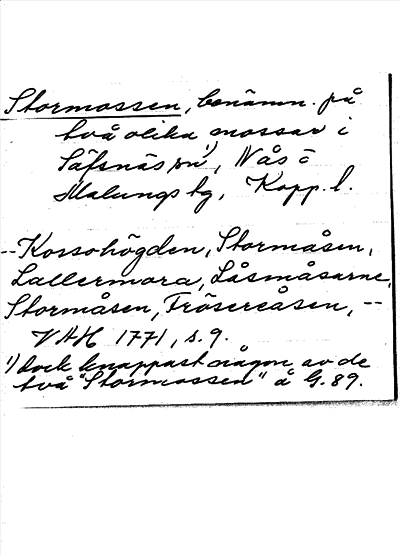 Stormossen, benämn. på
två olika mossar i
Säfsnäs sn¹), Nås o
Malungs tg, Kopp. l.
-- Kossohögden, Stormåsen,
Lallermora, Låsmåsarne,
Stormåsen, Frösereåsen, --
VAH 1771, s. 9.
¹) dock knappast någon av de
två "Stormossen" å G. 89.